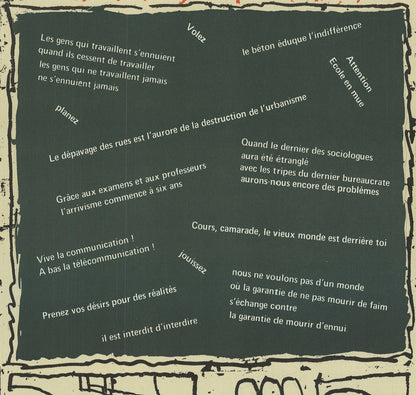 Volez
Les gens qui travaillent s'ennuient
quand ils cessent de travailler
les gens qui ne travaillent jamais
ne s'ennuient jamais
le béton éduque l'indifférence
Attention
Ecole en mue
planez
Le dépavage des rues est l'aurore de la destruction de l'urbanisme
Quand le dernier des sociologues
aura été étranglé
avec les tripes du dernier bureaucrate
aurons-nous encore des problèmes
Grâce aux examens et aux professeurs
l'arrivisme commence à six ans
Cours, camarade, le vieux monde est derrière toi
Vive la communication !
A bas la télécommunication !
jouissez
nous ne voulons pas d'un monde
où la garantie de ne pas mourir de faim
s'échange contre
la garantie de mourir d'ennui
Prenez vos désirs pour des réalités
il est interdit d'interdire